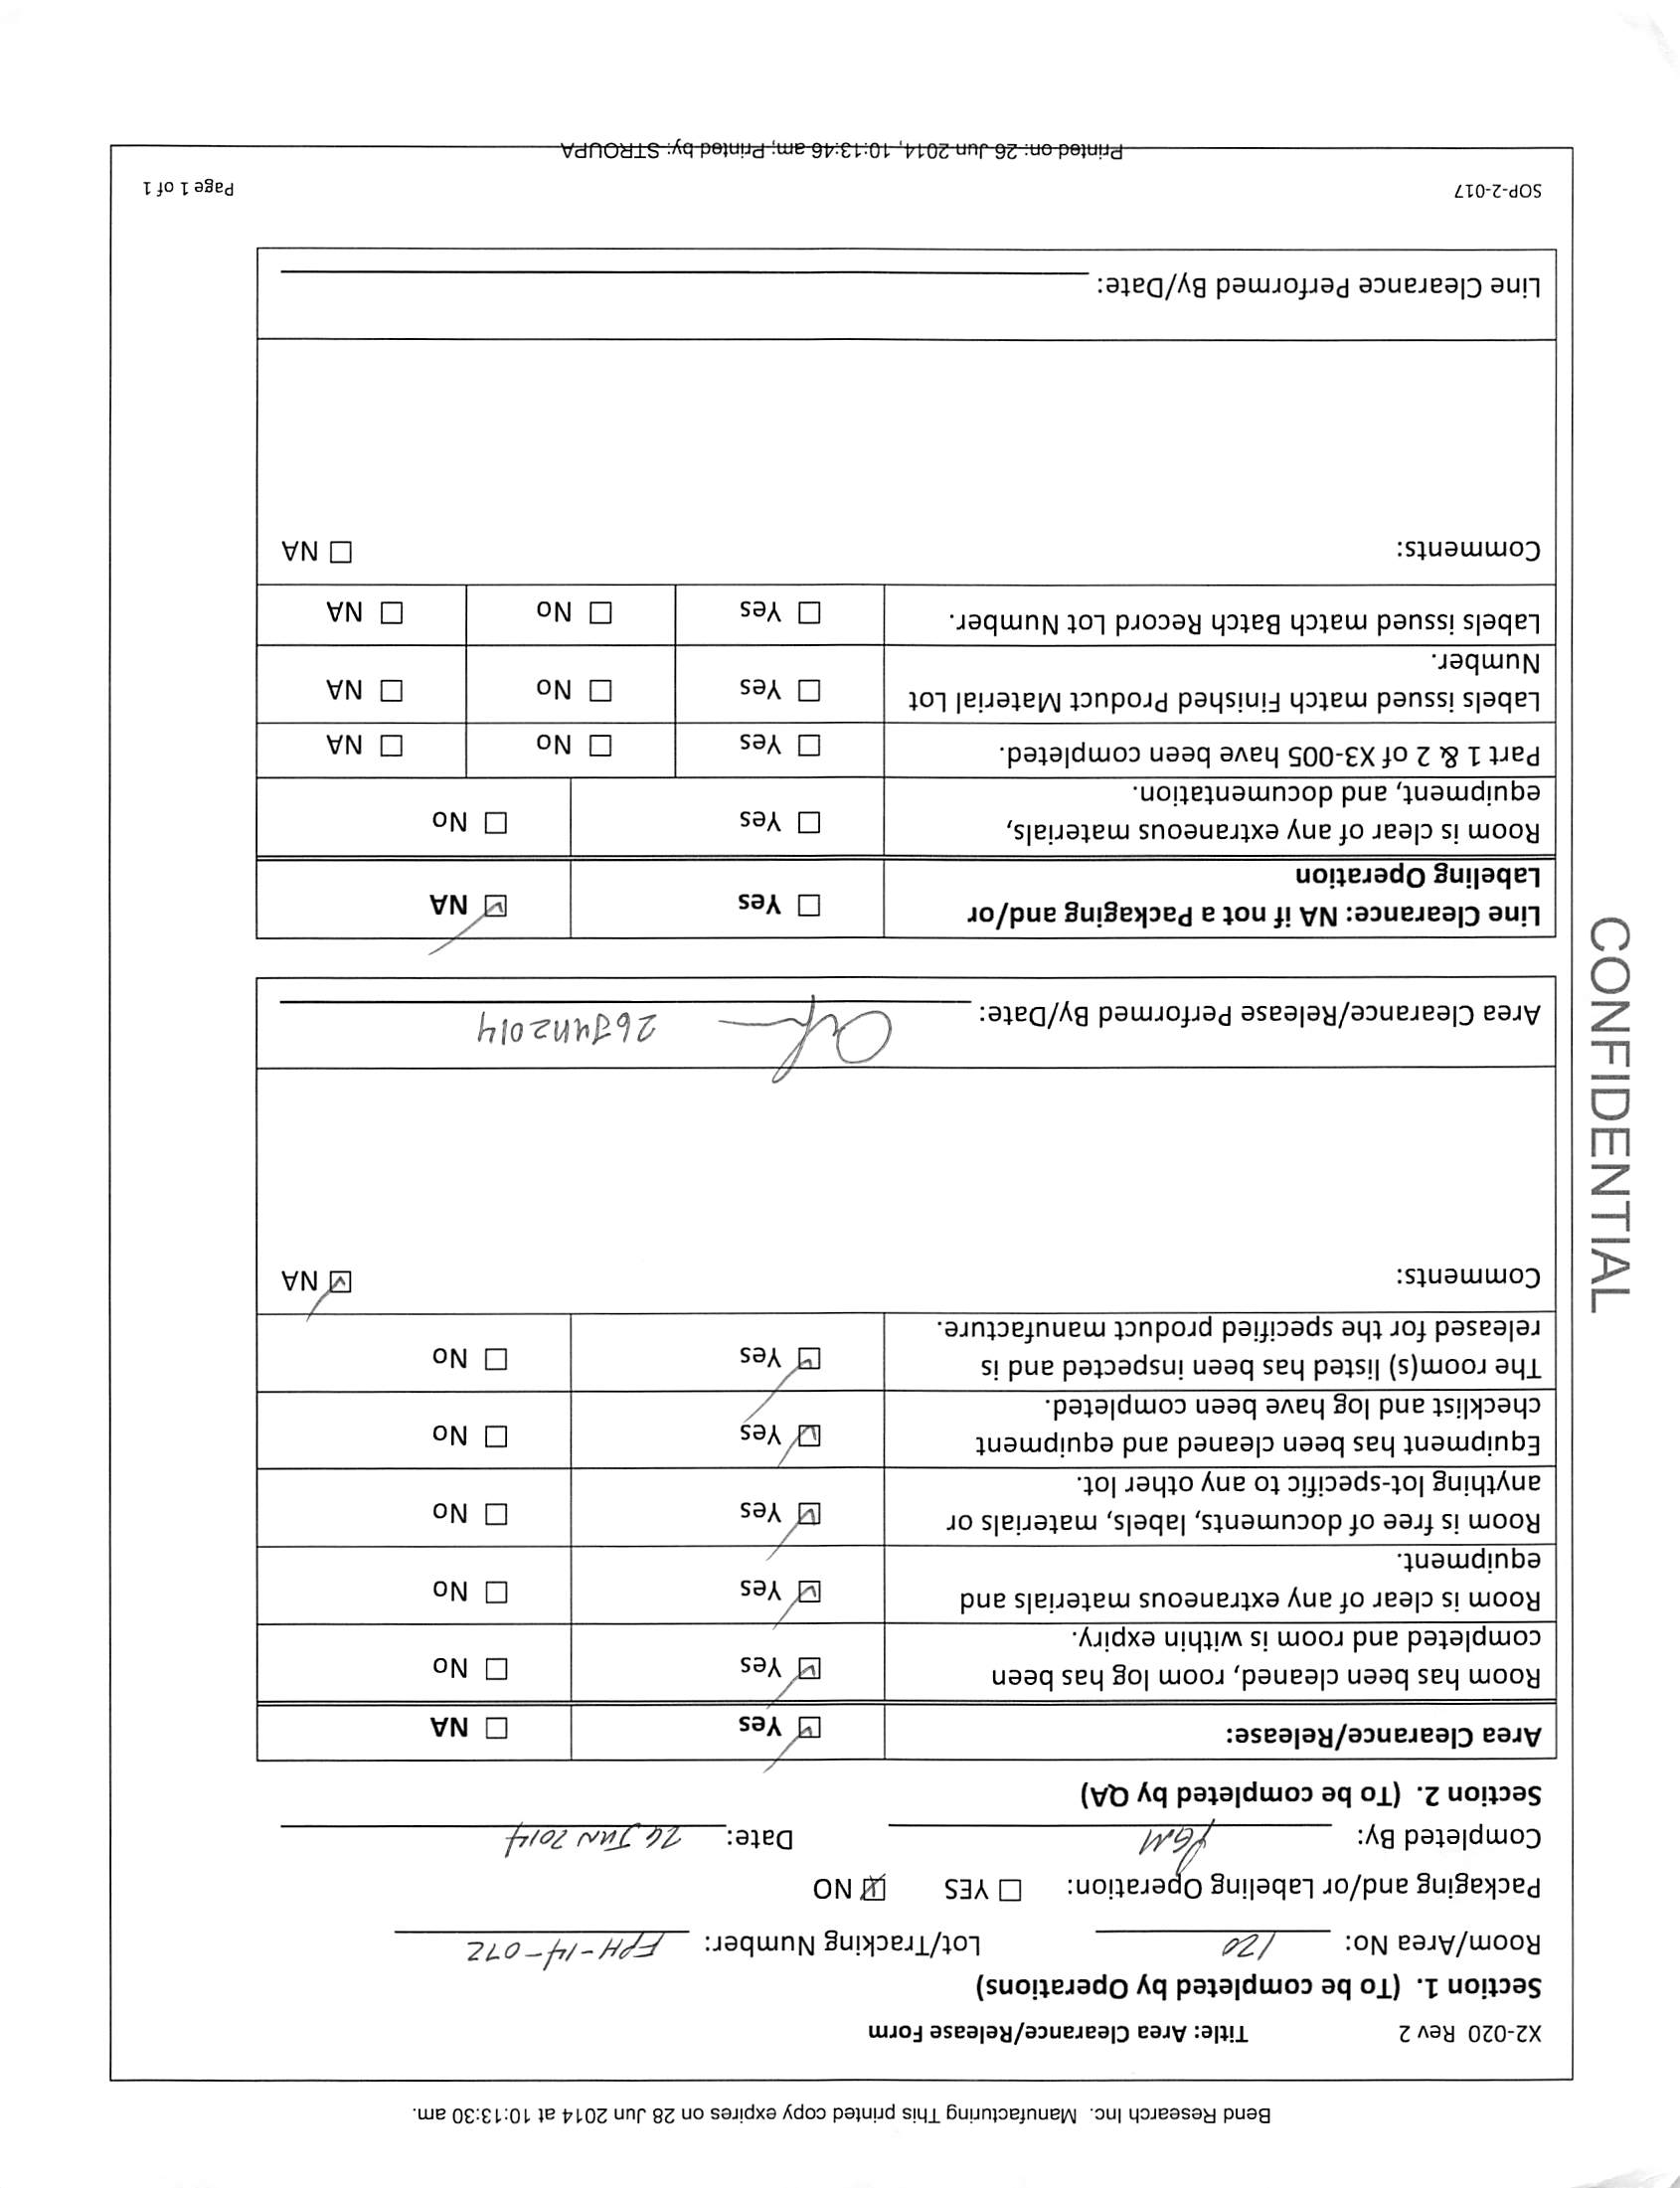 Bend Research Inc. Manufacturing This printed copy expires on 28 Jun 2014 at 10:13:30 am.
X2-020 Rev 2 Title: Area Clearance/Release Form
Section 1. (To be completed by Operations)
Room/Area No: 120 Lot/Tracking Number: FPH-14-072
Packaging and/or Labeling Operation: ☐ YES ☒ NO
Completed By: PGM Date: 26 JUN 2014
Section 2. (To be completed by QA)
Area Clearance/Release: ☑ Yes ☐ NA
Room has been cleaned, room log has been
completed and room is within expiry. ☑ Yes ☐ No
Room is clear of any extraneous materials and
equipment. ☑ Yes ☐ No
Room is free of documents, labels, materials or
anything lot-specific to any other lot. ☑ Yes ☐ No
Equipment has been cleaned and equipment
checklist and log have been completed. ☑ Yes ☐ No
The room(s) listed has been inspected and is
released for the specified product manufacture. ☑ Yes ☐ No
Comments: ☑ NA
Area Clearance/Release Performed By/Date: 26Jun2014
Line Clearance: NA if not a Packaging and/or
Labeling Operation ☐ Yes ☑ NA
Room is clear of any extraneous materials,
equipment, and documentation. ☐ Yes ☐ No
Part 1 & 2 of X3-005 have been completed. ☐ Yes ☐ No ☐ NA
Labels issued match Finished Product Material Lot
Number. ☐ Yes ☐ No ☐ NA
Labels issued match Batch Record Lot Number. ☐ Yes ☐ No ☐ NA
Comments: ☐ NA
Line Clearance Performed By/Date:
SOP-2-017 Page 1 of 1
Printed on: 26 Jun 2014, 10:13:46 am; Printed by: STROUPA
CONFIDENTIAL